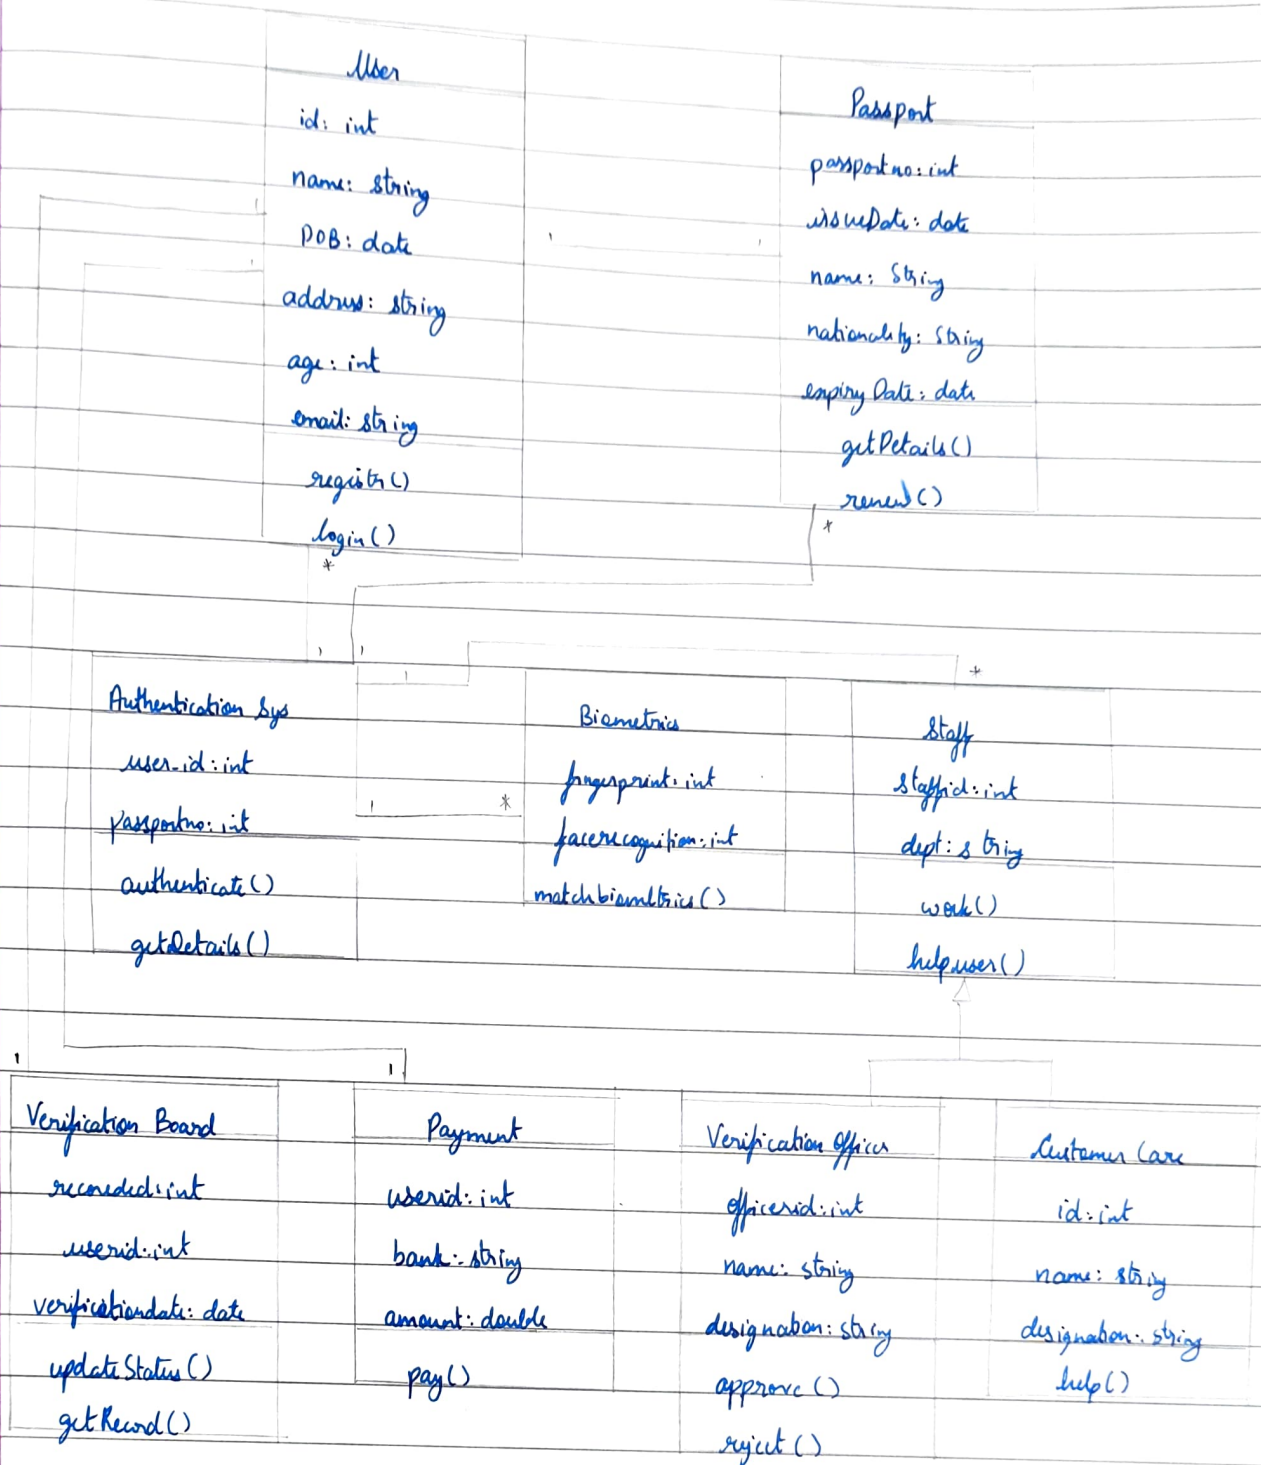 User
id: int
name: string
DOB: date
address: string
age: int
email: string
register()
login()
Passport
passportno: int
issueDate: date
name: String
nationality: String
expiry Date: date
getDetails()
renew()
1
1
1
1
*
*
1
1
1
*
1
*
Authentication Sys
user_id: int
Passportno: int
authenticate()
getDetails()
Biometrics
fingerprint: int
facerecognition: int
matchbiometrics()
Staff
staffid: int
dept: string
work()
helpuser()
1
1
Verification Board
userid: int
verificationdate: date
updateStatus()
getRecord()
Payment
userid: int
bank: string
amount: double
pay()
Verification Officer
officerid: int
name: string
designation: string
approve()
reject()
Customer Care
id: int
name: string
designation: string
help()